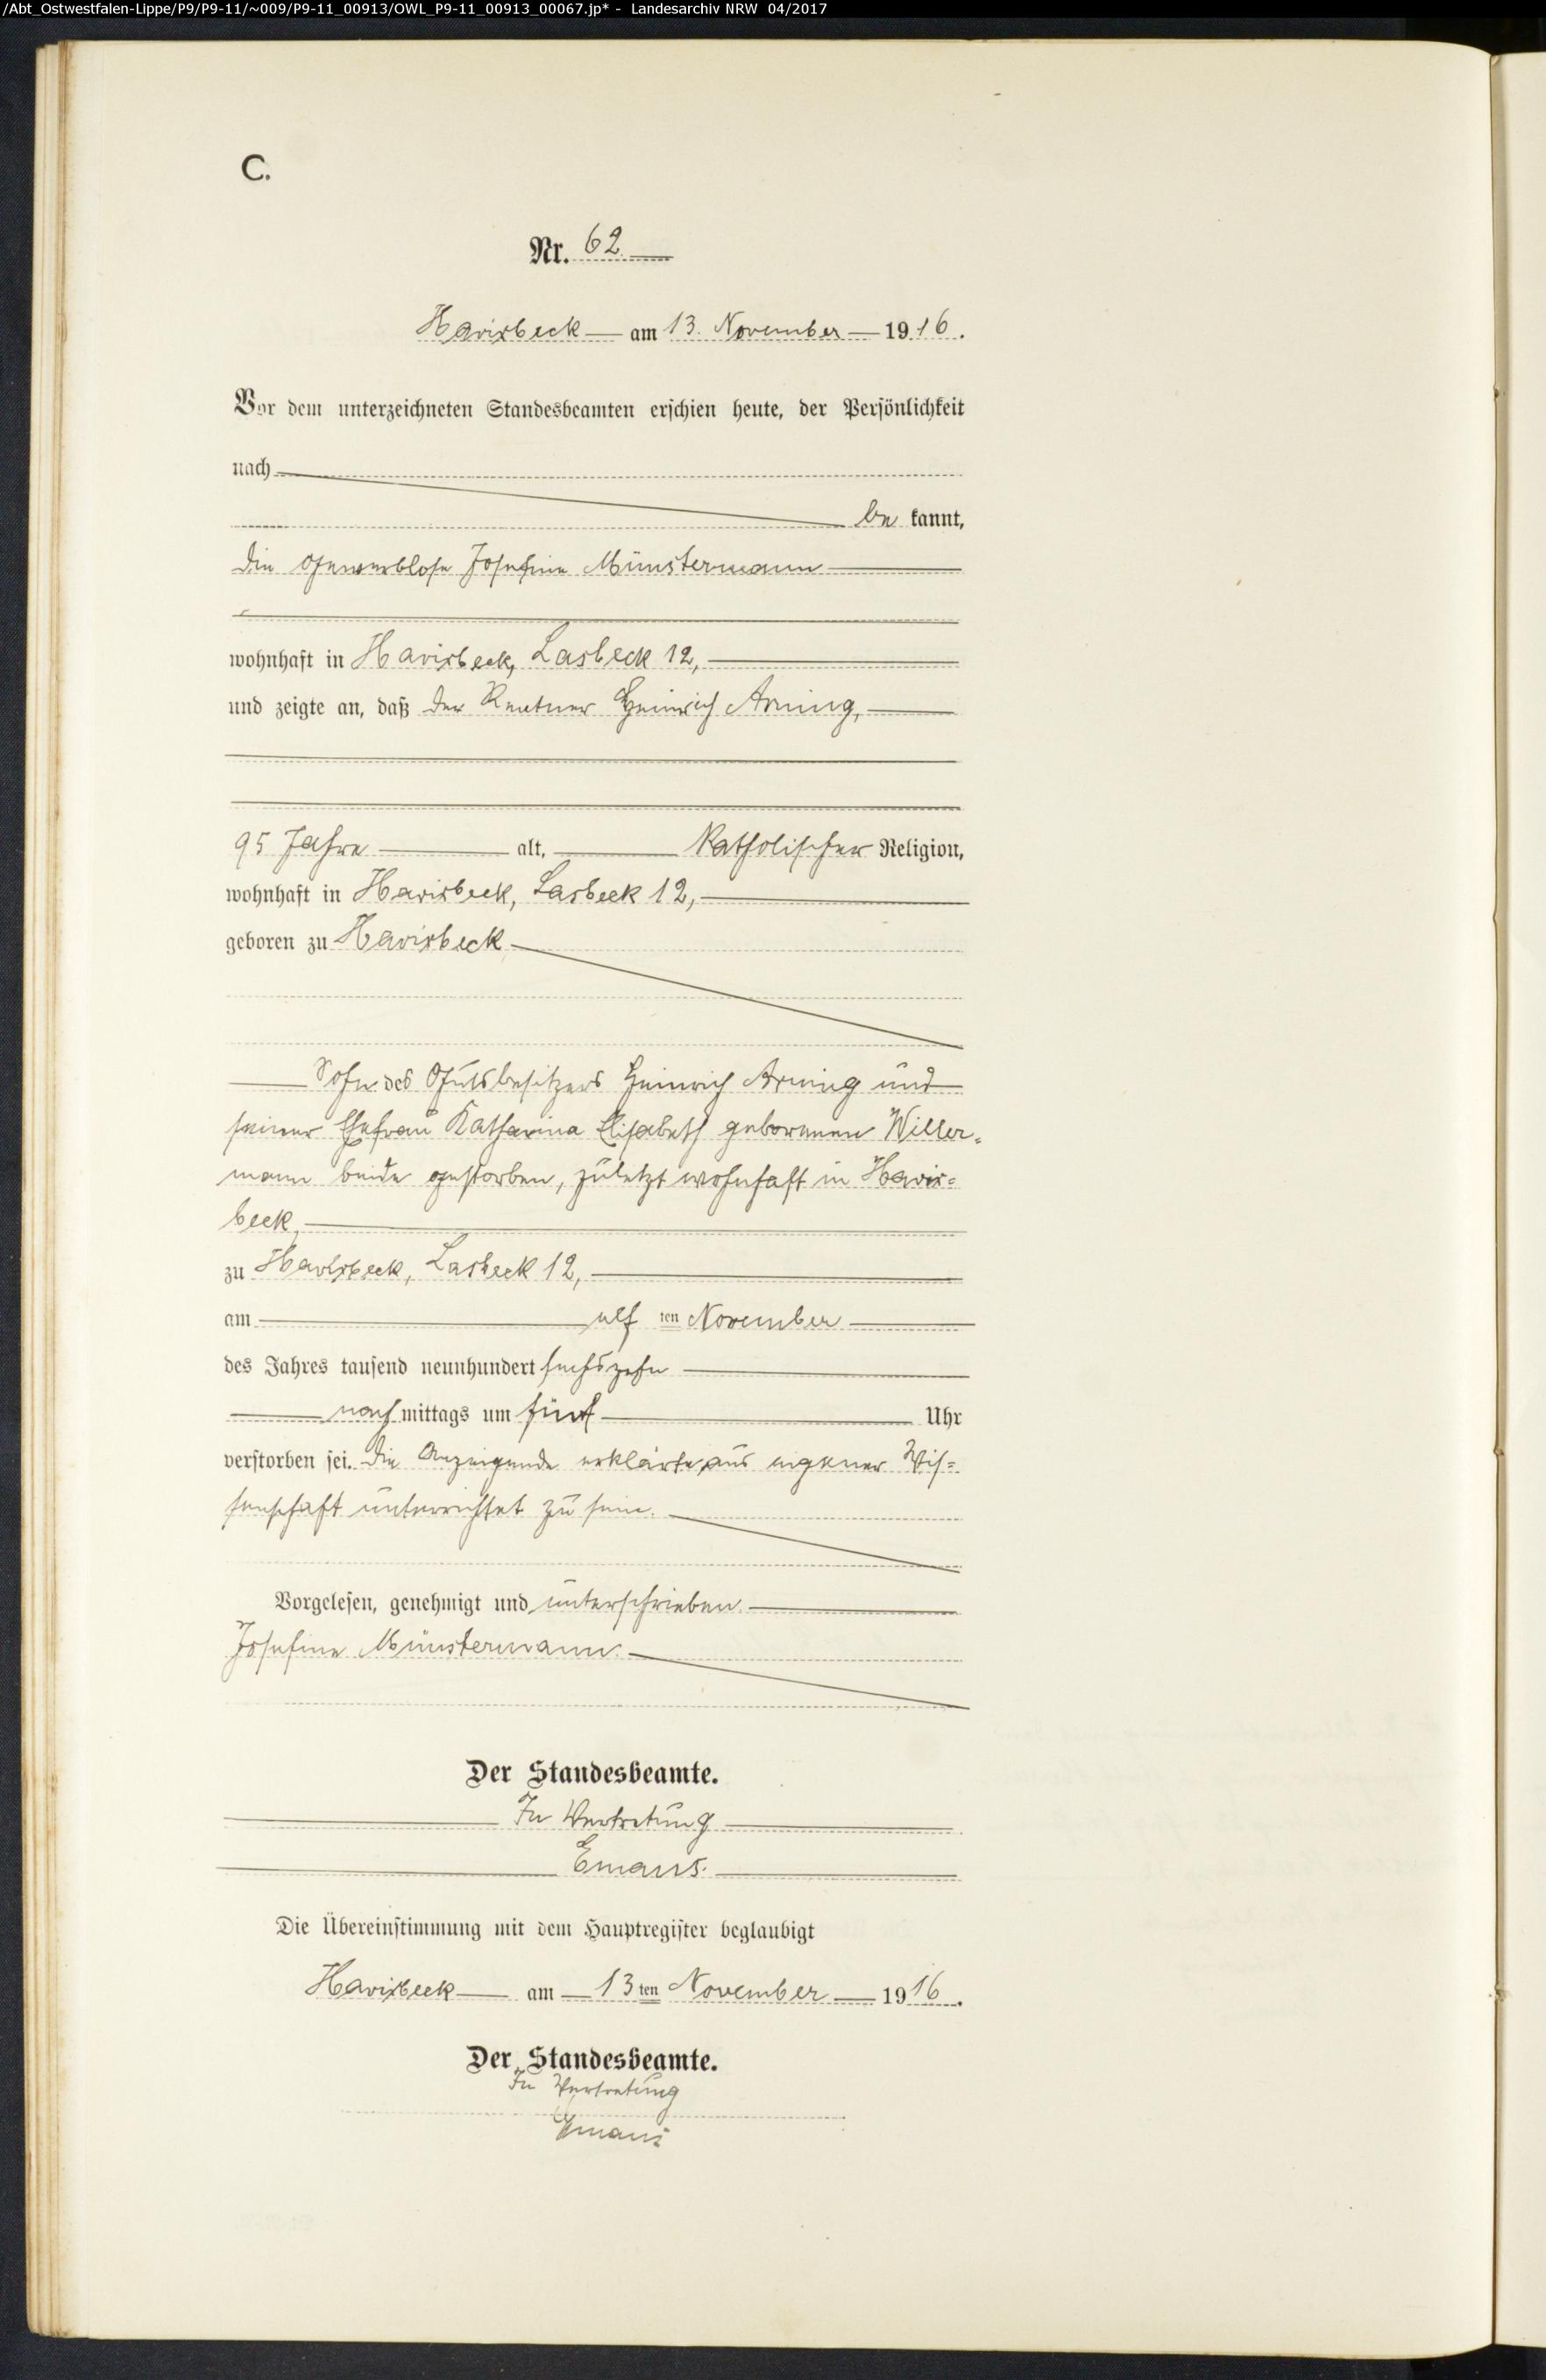 /Abt_Ostwestfalen-Lippe/P9/P9-11/~009/P9-11_00913/OWL_P9-11_00913_00067.jp* - Landesarchiv NRW 04/2017
C.
Nr. 62
Havixbeck am 13. November 1916.
Vor dem unterzeichneten Standesbeamten erschien heute, der Persönlichkeit
nach
be kannt,
die gewerblose Josefine Münstermann
wohnhaft in Havixbeck, Lasbeck 12,
und zeigte an, daß der Rentner Heinrich Arning,
95 Jahre alt, katholischer Religion,
wohnhaft in Havixbeck, Lasbeck 12,
geboren zu Havixbeck
Sohn des Gutsbesitzers Heinrich Arning und
seiner Ehefrau Katharina Elisabeth geborenen Willer-
mann beide gestorben, zuletzt wohnhaft in Havix-
beck,
zu Havixbeck, Lasbeck 12,
am elf ten November
des Jahres tausend neunhundert sechszehn
nach mittags um fünf Uhr
verstorben sei. Die Anzeigende erklärte, aus eigener Wis-
senschaft unterrichtet zu sein.
Vorgelesen, genehmigt und unterschrieben.
Josefine Münstermann.
Der Standesbeamte.
In Vertretung
Emans.
Die Übereinstimmung mit dem Hauptregister beglaubigt
Havixbeck am 13ten November 1916.
Der Standesbeamte.
In Vertretung
Emans